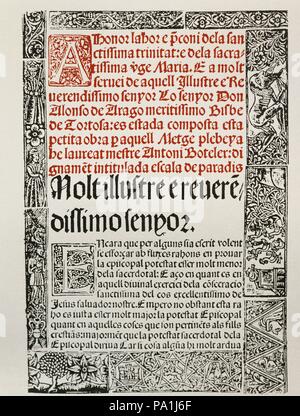 A honor labor e p̄coni dela san
ctissima trinitat: e dela sacra-
tissima v̄ge Maria. E a molt
seruei de aquell Illustre e Re
uerendissimo senyor Lo senyor Don
Alonso de Arago meritissimo Bisbe
de Tortosa: es estada composta esta
petita obra p aquell Metge plebeya
he laureat mestre Antoni Boteler: di
gnamēt intitulada escala de paradis
Molt illustre e reuerē-
dissimo senyor.
ENcara que per alguns sia escrit volent
se esforçar ab fictes rahons en prouar
la episcopal potestat esser molt menor
dela sacerdotal: E aço en quant es en
aquell diuinal exercici dela cōsecracio
sanctissima del cos excellentissimo de
Jesus saluador nostre. Empero no obstant esta ra
ho es iusta esser molt major la potestat Episcopal
quant en aquelles coses que son pertinēts als fills
crestiās: majormēt que la potestat sacerdotal dela
Episcopal deriua
alamy
PA1J6F